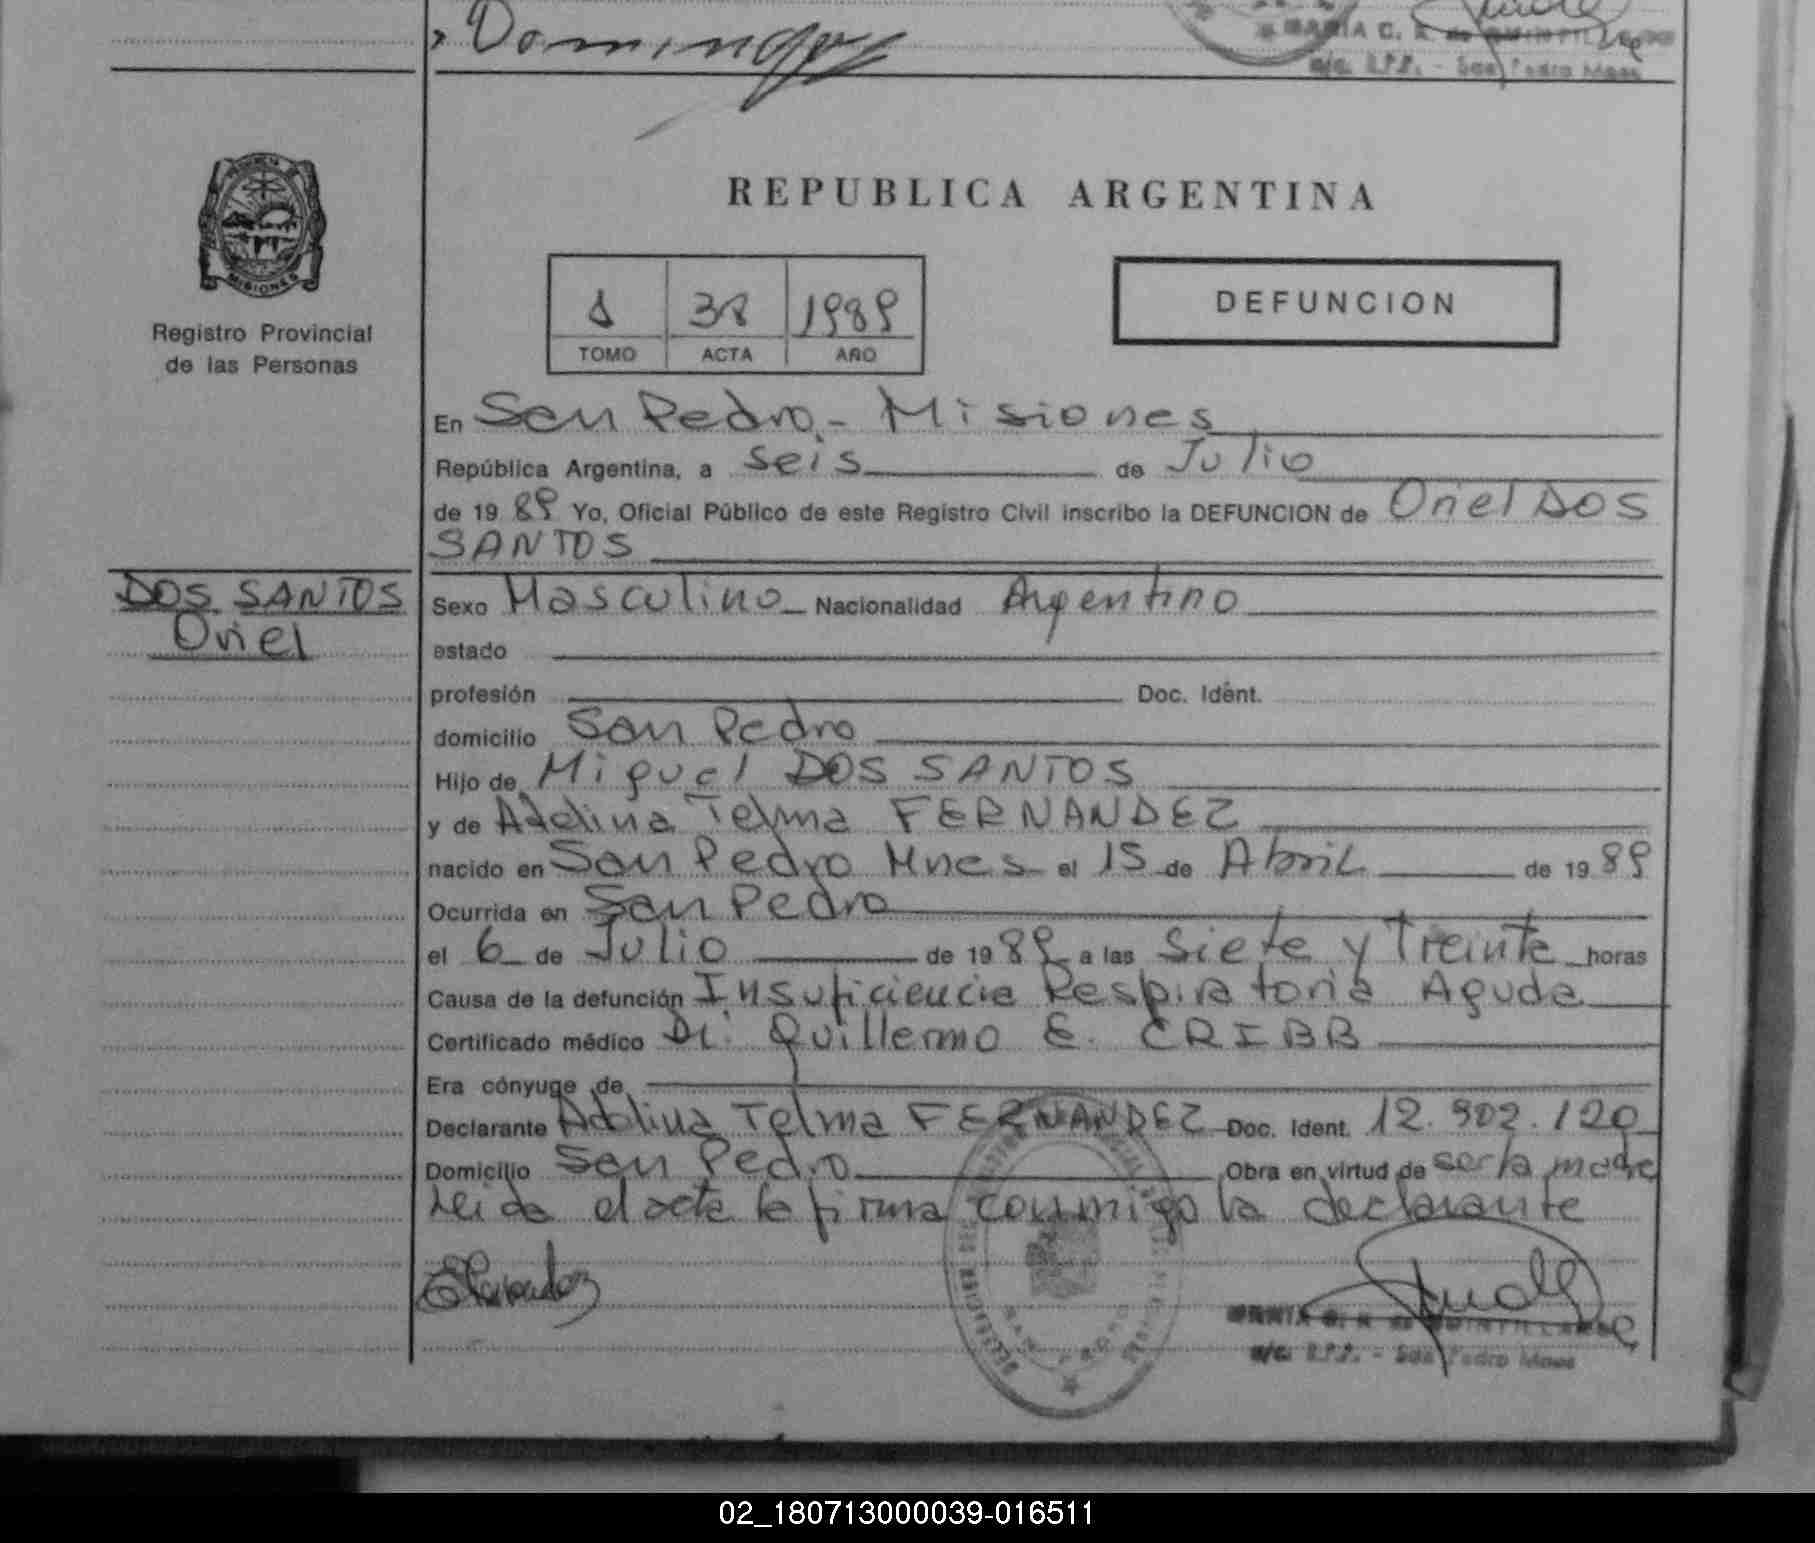 Domingo
MARIA C. R. de QUINTILLANO
a/c. R.P.P. - San Pedro Mnes
MISIONES
Registro Provincial
de las Personas
REPUBLICA ARGENTINA
1 38 1989
TOMO ACTA AÑO
DEFUNCION
En San Pedro.- Misiones
República Argentina, a seis de Julio
de 19 89 Yo, Oficial Público de este Registro Civil inscribo la DEFUNCION de Oriel DOS
SANTOS
DOS SANTOS
Oriel
Sexo Masculino Nacionalidad Argentino
estado
profesión Doc. Idént.
domicilio San Pedro
Hijo de Miguel DOS SANTOS
y de Adelina Telma FERNANDEZ
nacido en San Pedro Mnes el 15 de Abril de 19 89
Ocurrida en San Pedro
el 6 de Julio de 19 89 a las Siete y Treinta horas
Causa de la defunción Insuficiencia Respiratoria Aguda
Certificado médico Dr. Guillermo E. CRIBB
Era cónyuge de
Declarante Adelina Telma FERNANDEZ Doc. Ident. 12.902.120
Domicilio San Pedro Obra en virtud de ser la madre
Leida el acta la firma conmigo la declarante
a/c. R.P.P. - San Pedro Mnes
02_180713000039-016511